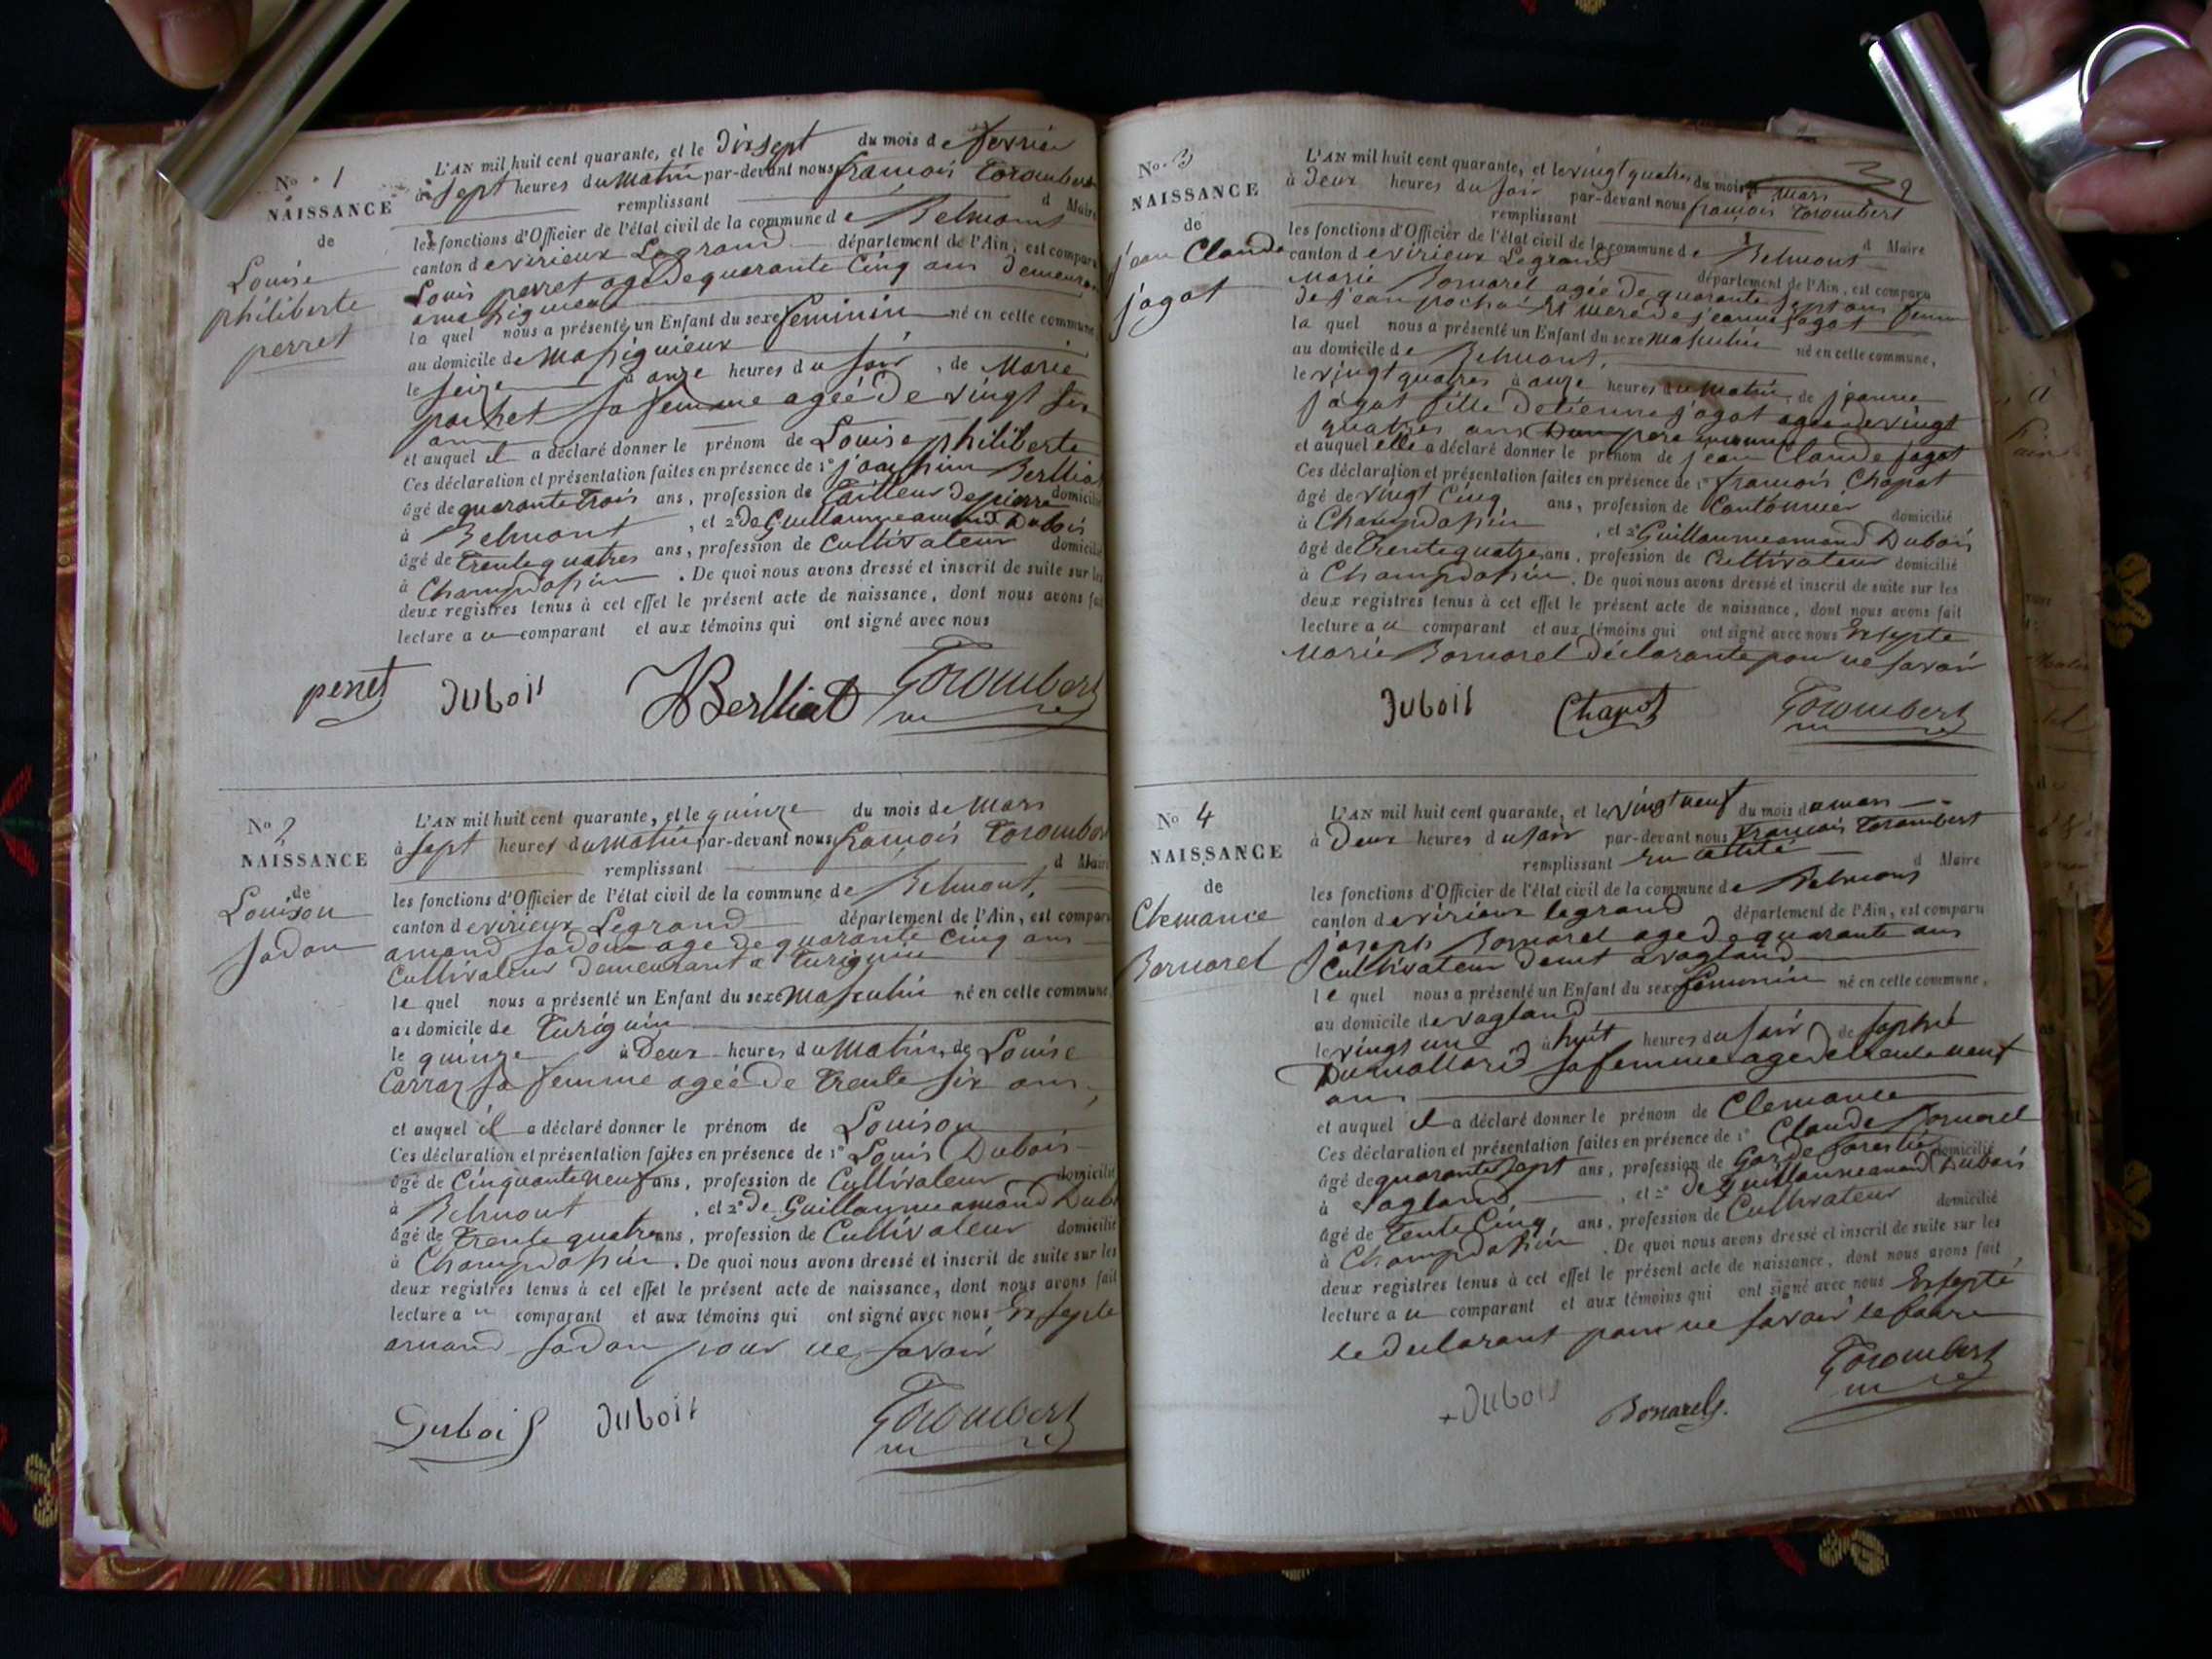 No. 1
NAISSANCE
de
Louise
philiberte
perret
L'AN mil huit cent quarante, et le Dixsept du mois de fevrier
à sept heures du Matin par-devant nous françois Corombert
remplissant d Maire
les fonctions d'Officier de l'état civil de la commune de Belmont
canton de virieux Legrand département de l'Ain, est comparu
Louis perret age de quarante Cinq ans Demeurant
a masigneux
la quel nous a présenté un Enfant du sexe feminin né en cette commune,
au domicile de Masignieux
le seize à onze heures du soir, de Marie
pochet sa femme ageé De vingt six
ans
et auquel il a déclaré donner le prénom de Louise philiberte
Ces déclaration et présentation faites en présence de 1° joachim Berlliat
âgé de quarante trois ans, profession de Tailleur De pierre domicilié
à Belmont, et 2° de Guillaumeamand Dubois
âgé de Trente quatres ans, profession de Cultivateur domicilié
à Champdossin. De quoi nous avons dressé et inscrit de suite sur les
deux registres tenus à cet effet le présent acte de naissance, dont nous avons fait
lecture a u comparant et aux témoins qui ont signé avec nous
perret Dubois JBerlliat Corombert
No 2
NAISSANCE
de
Louison
Jadon
L'AN mil huit cent quarante, et le quinze du mois de Mars
à sept heures du Matin par-devant nous françois Corombert
remplissant d Maire
les fonctions d'Officier de l'état civil de la commune de Belmont,
canton de virieux Legrand département de l'Ain, est comparu
amand Jadon age de quarante cinq ans
Cultivateur Demeurant a Turignin
le quel nous a présenté un Enfant du sexe Masculin né en cette commune,
au domicile de Turignin
le quinze à Deux heures du Matin, de Louise
Carraz sa femme ageé De Trente six ans,
et auquel il a déclaré donner le prénom de Louison
Ces déclaration et présentation faites en présence de 1° Louis Dubois
âgé de Cinquante neuf ans, profession de Cultivateur domicilié
à Belmont, et 2° De Guillaumeamand Dubois
âgé de Trente quatre ans, profession de Cultivateur domicilié
à Champdossin. De quoi nous avons dressé et inscrit de suite sur les
deux registres tenus à cet effet le présent acte de naissance, dont nous avons fait
lecture a u comparant et aux témoins qui ont signé avec nous Exsepte
amand Jadon pour ne savoir
Dubois Dubois Corombert
No. 3
NAISSANCE
de
jean Claude
jagot
L'AN mil huit cent quarante, et le vingt quatres du mois de Mars
à Deux heures du soir par-devant nous françois Corombert
remplissant d Maire
les fonctions d'Officier de l'état civil de la commune de Belmont
canton de virieux Legrand département de l'Ain, est comparu
Marie Bornarel agée de quarante sept ans femme
de jean pochet et mere de jeanne jagot
la quel nous a présenté un Enfant du sexe Masculin né en cette commune,
au domicile de Belmont,
le vingt quatres à onze heures du Matin, de jeanne
jagot fille Detienne jagot agée de vingt
quatres ans Dun pere inconnu
et auquel elle a déclaré donner le prénom de jean Claude jagot
Ces déclaration et présentation faites en présence de 1° françois Chapot
âgé de vingt Cinq ans, profession de Cantonnier domicilié
à Champdossin, et 2° Guillaumeamand Dubois
âgé de Trente quatre ans, profession de Cultivateur domicilié
à Champdossin. De quoi nous avons dressé et inscrit de suite sur les
deux registres tenus à cet effet le présent acte de naissance, dont nous avons fait
lecture a u comparant et aux témoins qui ont signé avec nous Exsepte
Marie Bornarel Déclarante pour ne savoir
Dubois Chapot Corombert
No 4
NAISSANCE
de
Clemance
Bornarel
L'AN mil huit cent quarante, et le vingt neuf du mois de mars
à Deux heures du soir par-devant nous francois Corombert
remplissant d Maire
les fonctions d'Officier de l'état civil de la commune de Belmont
canton de virieux legrand département de l'Ain, est comparu
joseph Bornarel age de quarante ans
Cultivateur Demt a vagland
le quel nous a présenté un Enfant du sexe feminin né en cette commune,
au domicile de vagland
le vingt un à huit heures du soir, de sophie
Dumollard sa femme age de trente neuf
ans
et auquel il a déclaré donner le prénom de Clemance
Ces déclaration et présentation faites en présence de 1° Claude Bornarel
âgé de quarante sept ans, profession de Garde forestier domicilié
à vagland, et 2° de Guillaumeamand Dubois
âgé de Tente Cinq, ans, profession de Cultivateur domicilié
à Champdossin. De quoi nous avons dressé et inscrit de suite sur les
deux registres tenus à cet effet le présent acte de naissance, dont nous avons fait
lecture a u comparant et aux témoins qui ont signé avec nous Exsepté
le declarant pour ne savoir le faire
Dubois Bornarel Corombert